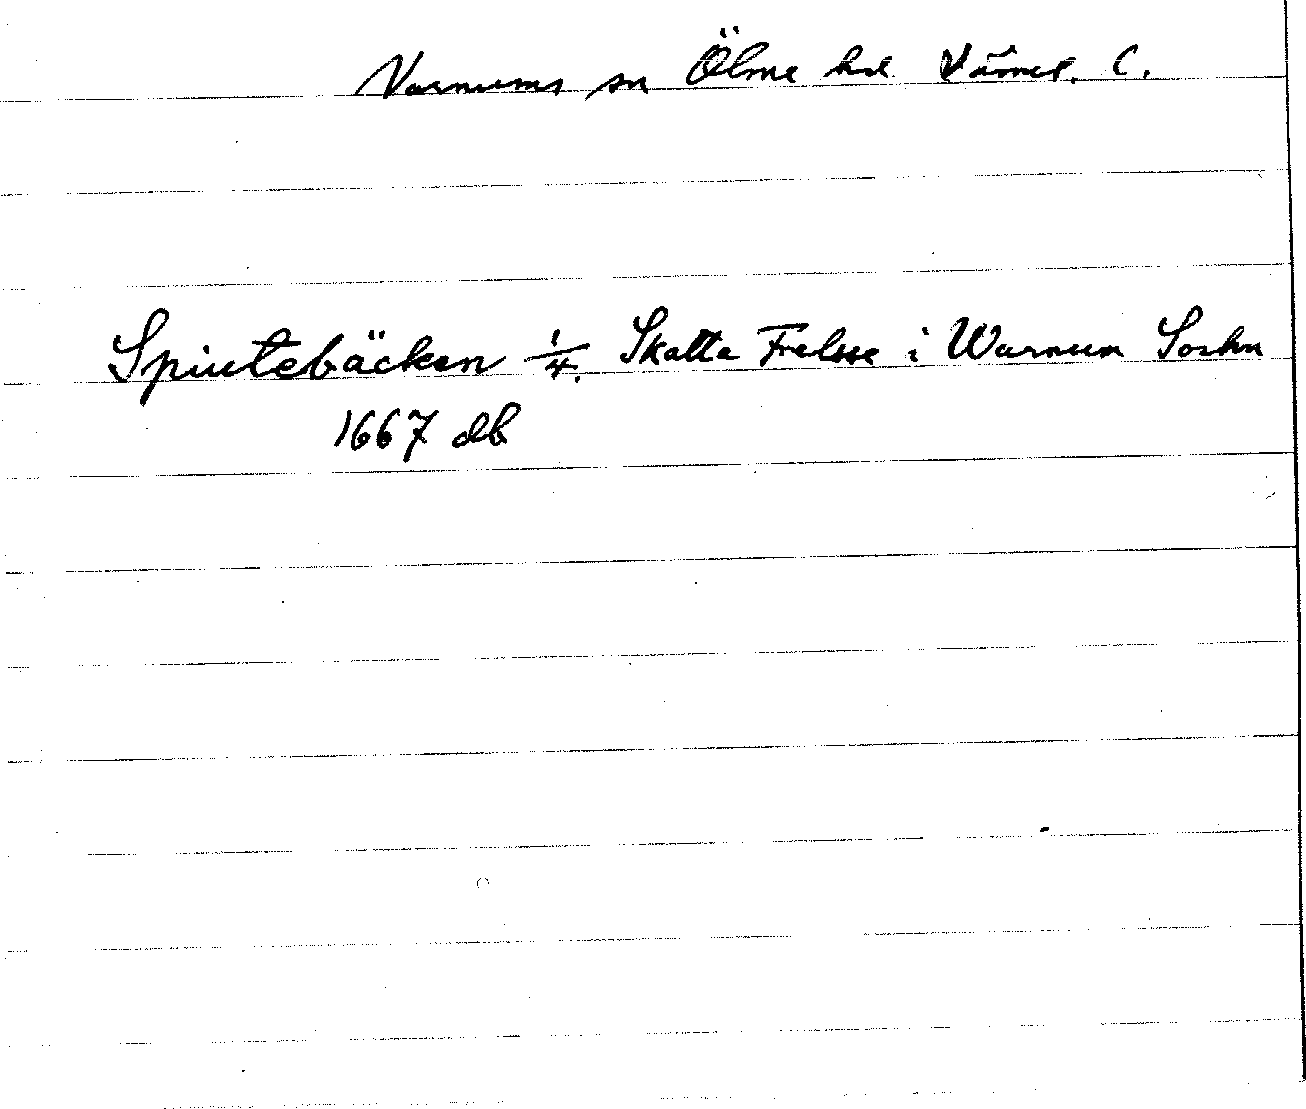 Varnums sn Ölme hd Värml. C.
Spiutebäcken 1/4. Skatta Frelsse i Warnum Sochn
1667 db